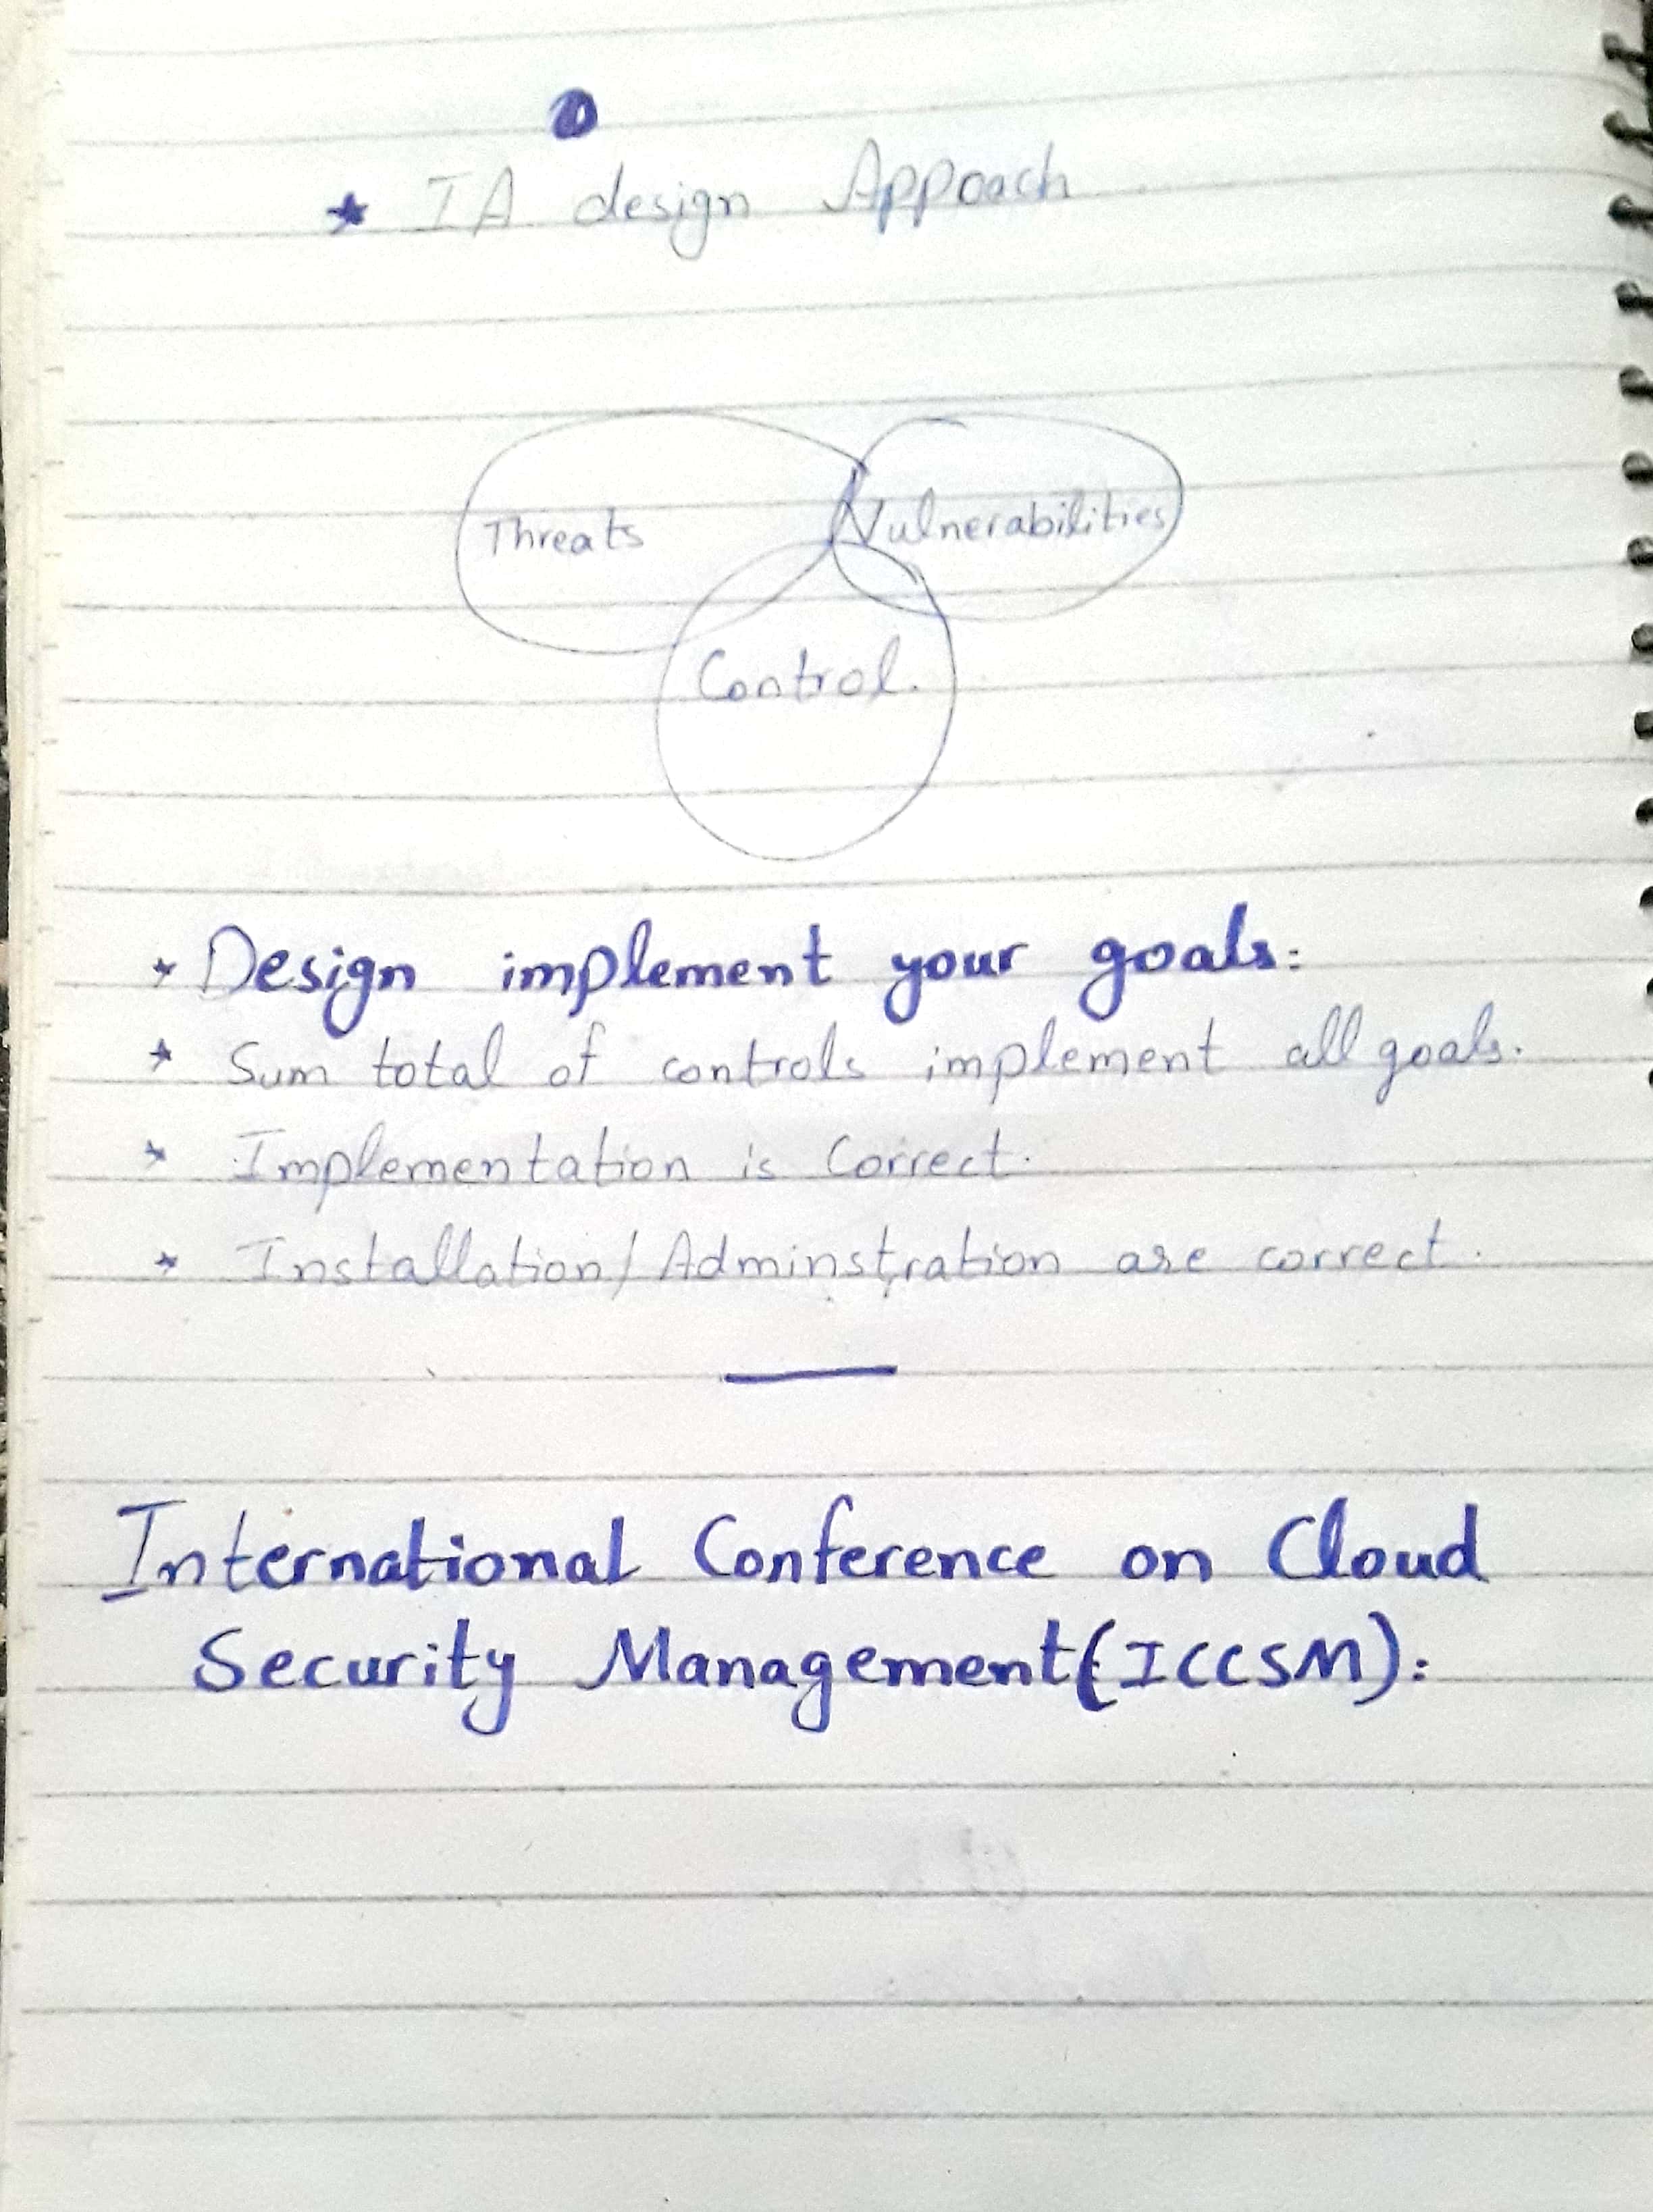 * IA design Appoach
Threats
Vulnerabilities
Control.
* Design implement your goals:
* Sum total of controls implement all goals.
* Implementation is Correct.
* Installation/Adminstration are correct.
International Conference on Cloud
Security Management(ICCSM):